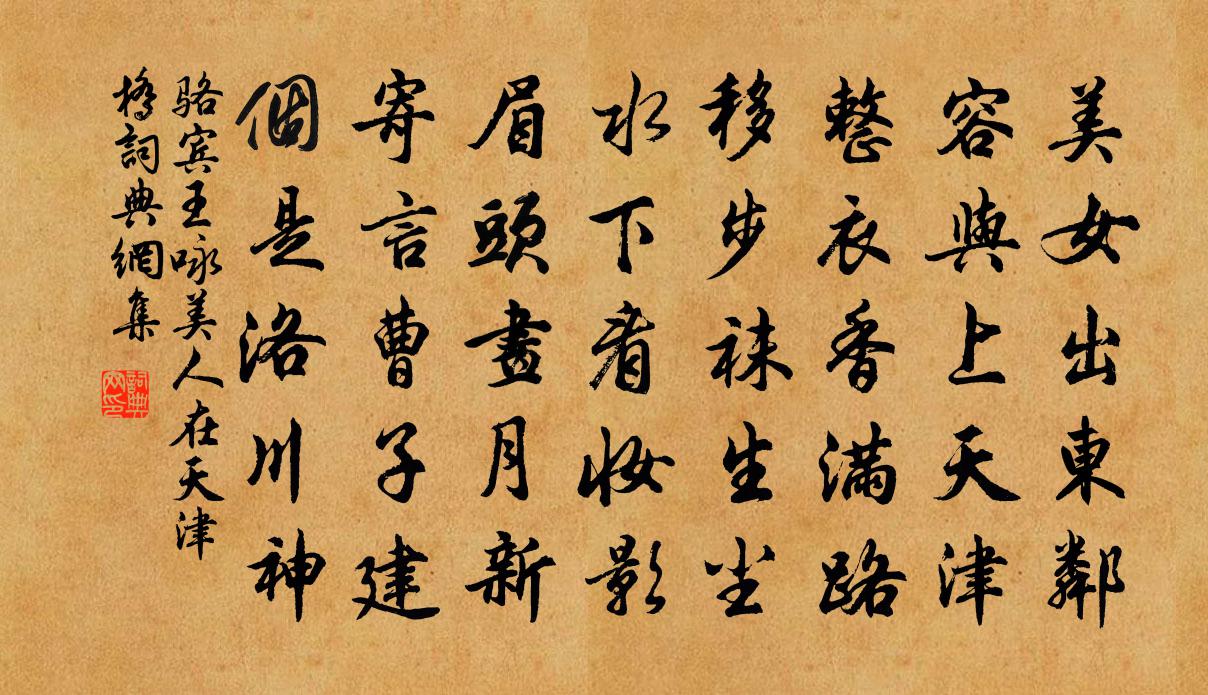 美女出東鄰
容與上天津
整衣香滿路
移步袜生尘
水下看妆影
眉頭畫月新
寄言曹子建
個是洛川神
骆宾王咏美人在天津
橋詞典網集
詞典
网印